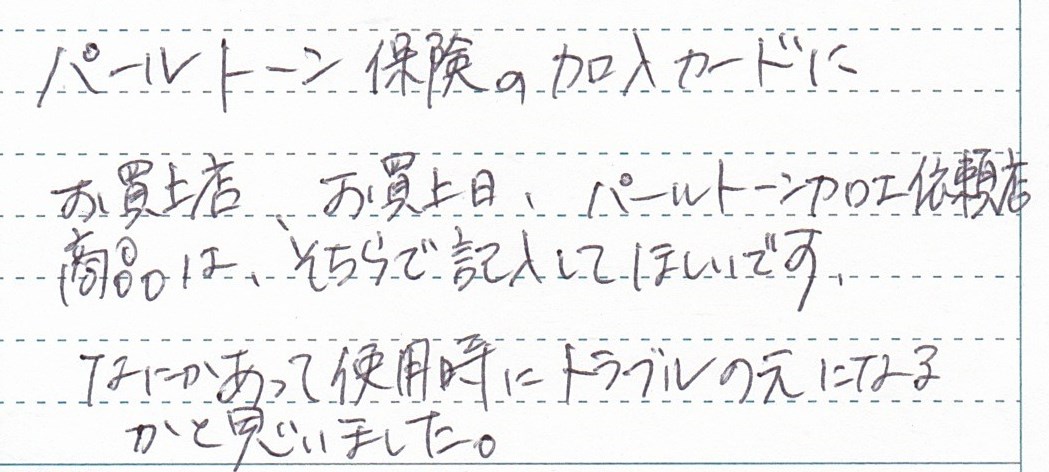 パールトーン保険の加入カードに
お買上店、お買上日、パールトーン加工依頼店
商品は、そちらで記入してほしいです、
なにかあって使用時にトラブルの元になる
かと思いました。